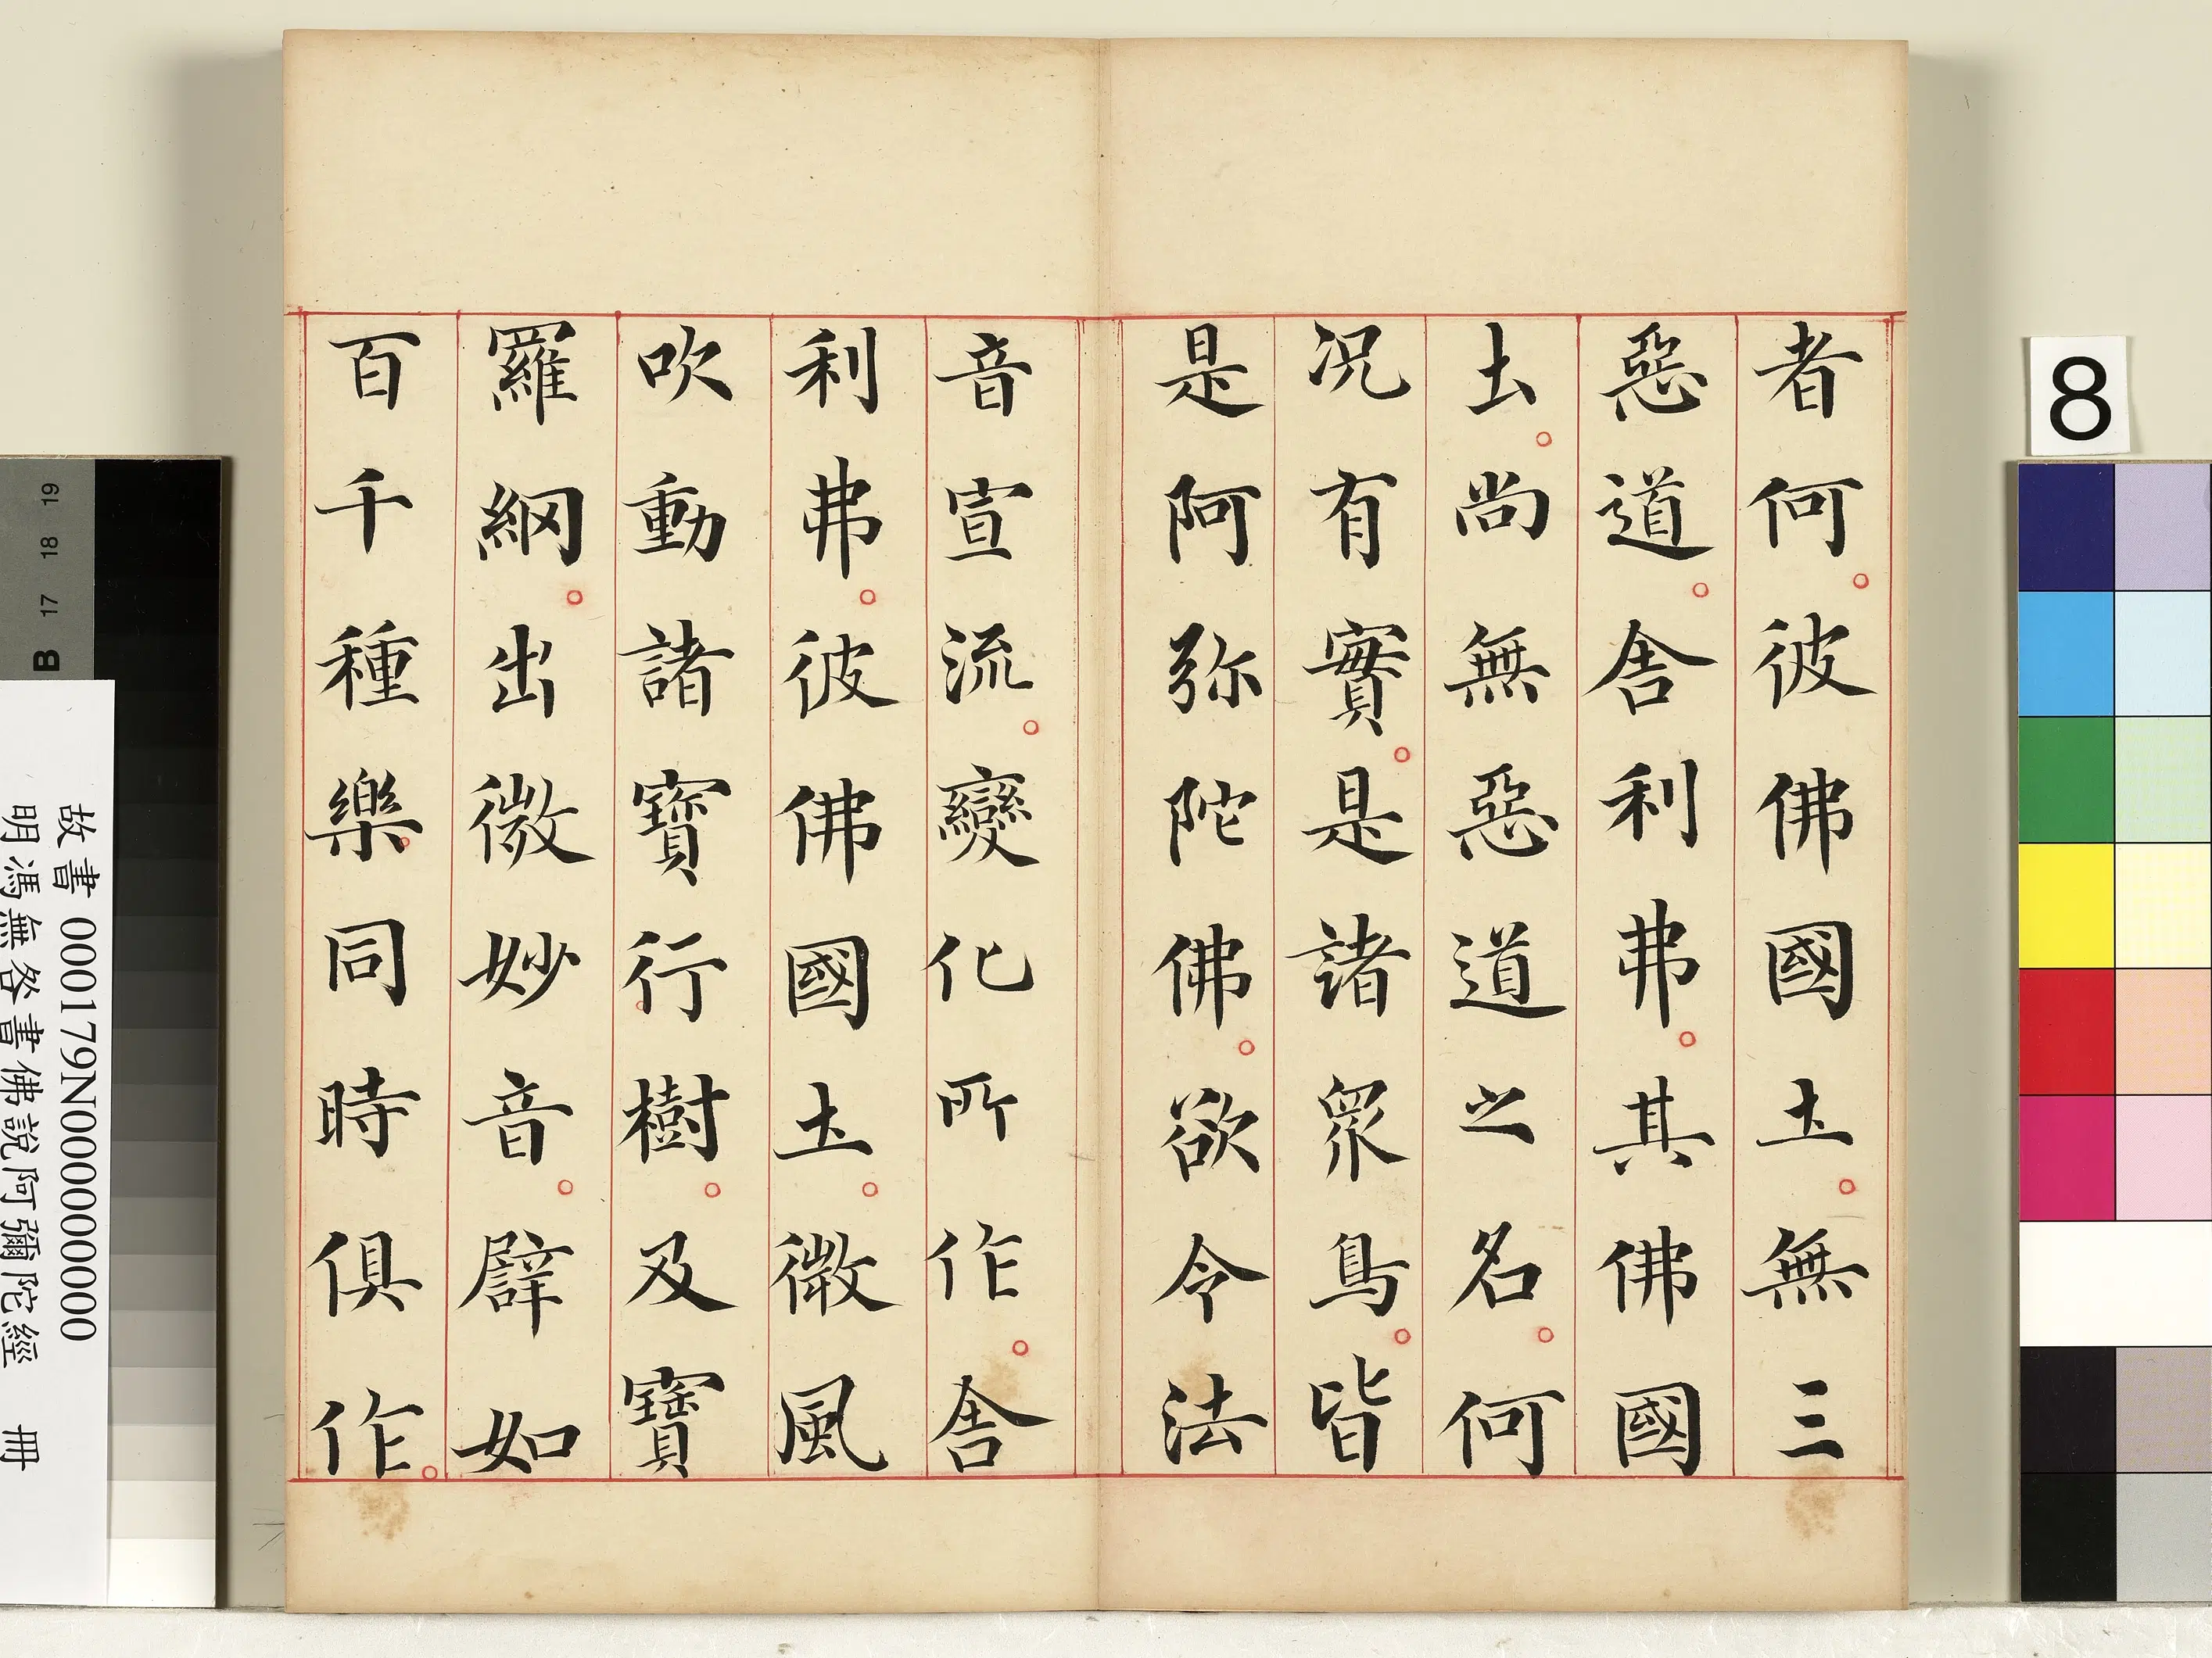 者何。彼佛國土。無三
惡道。舍利弗。其佛國
土。尚無惡道之名。何
況有實。是諸眾鳥。皆
是阿弥陀佛。欲令法
音宣流。變化所作。舍
利弗。彼佛國土。微風
吹動諸寶行樹。及寶
羅網。出微妙音。譬如
百千種樂。同時俱作。
8
19
18
17
B
故書 000179N000000000
明馮無咎書佛說阿彌陀經 冊